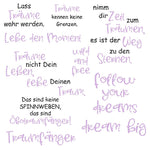 Lass
Träume
wahr werden.
Träume
kennen keine
Grenzen.
nimm
dir Zeit
zum
Träumen
Lebe den Moment
es ist der Weg
zu den
Sternen
wild
and
free
Träume
nicht Dein
Leben,
lebe Deinen
Traum
Das sind keine
SPINNWEBEN,
das sind
Traumfänger
follow
your
dreams
dream big